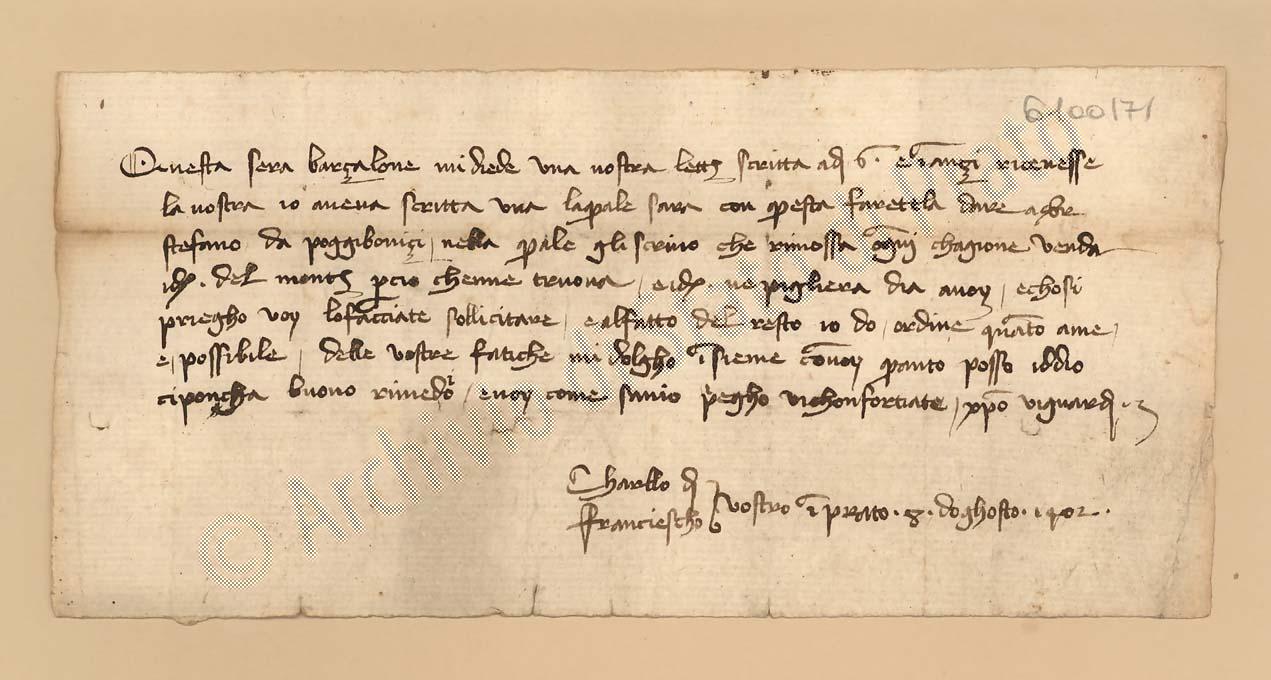 6/00171
Questa sera barzalone mi diede una vostra lettª scritta adj 6. e inanzi ricevesse
la vostra io aveva scritta una laquale sara con questa faretela dare a
stefano da poggibonizi, nella quale gli scrivo che rimossa ogni chagione venda
del perciò chenne truova, ne pigliera dia avoy, e chosi
priegho voy lo facciate sollicitare, e alfatto del resto io do, ordine quanto ame,
e, possibile, delle vostre fatiche mi dolgho insieme convoy quanto posso iddio
ciponcha buono rimedio, e voy come savio pregho vichonfortiate, xpo viguardj.
Charllo dj
Franciescho vostro in prato. 8. doghosto. 1402.
© Archivio di Stato di Prato